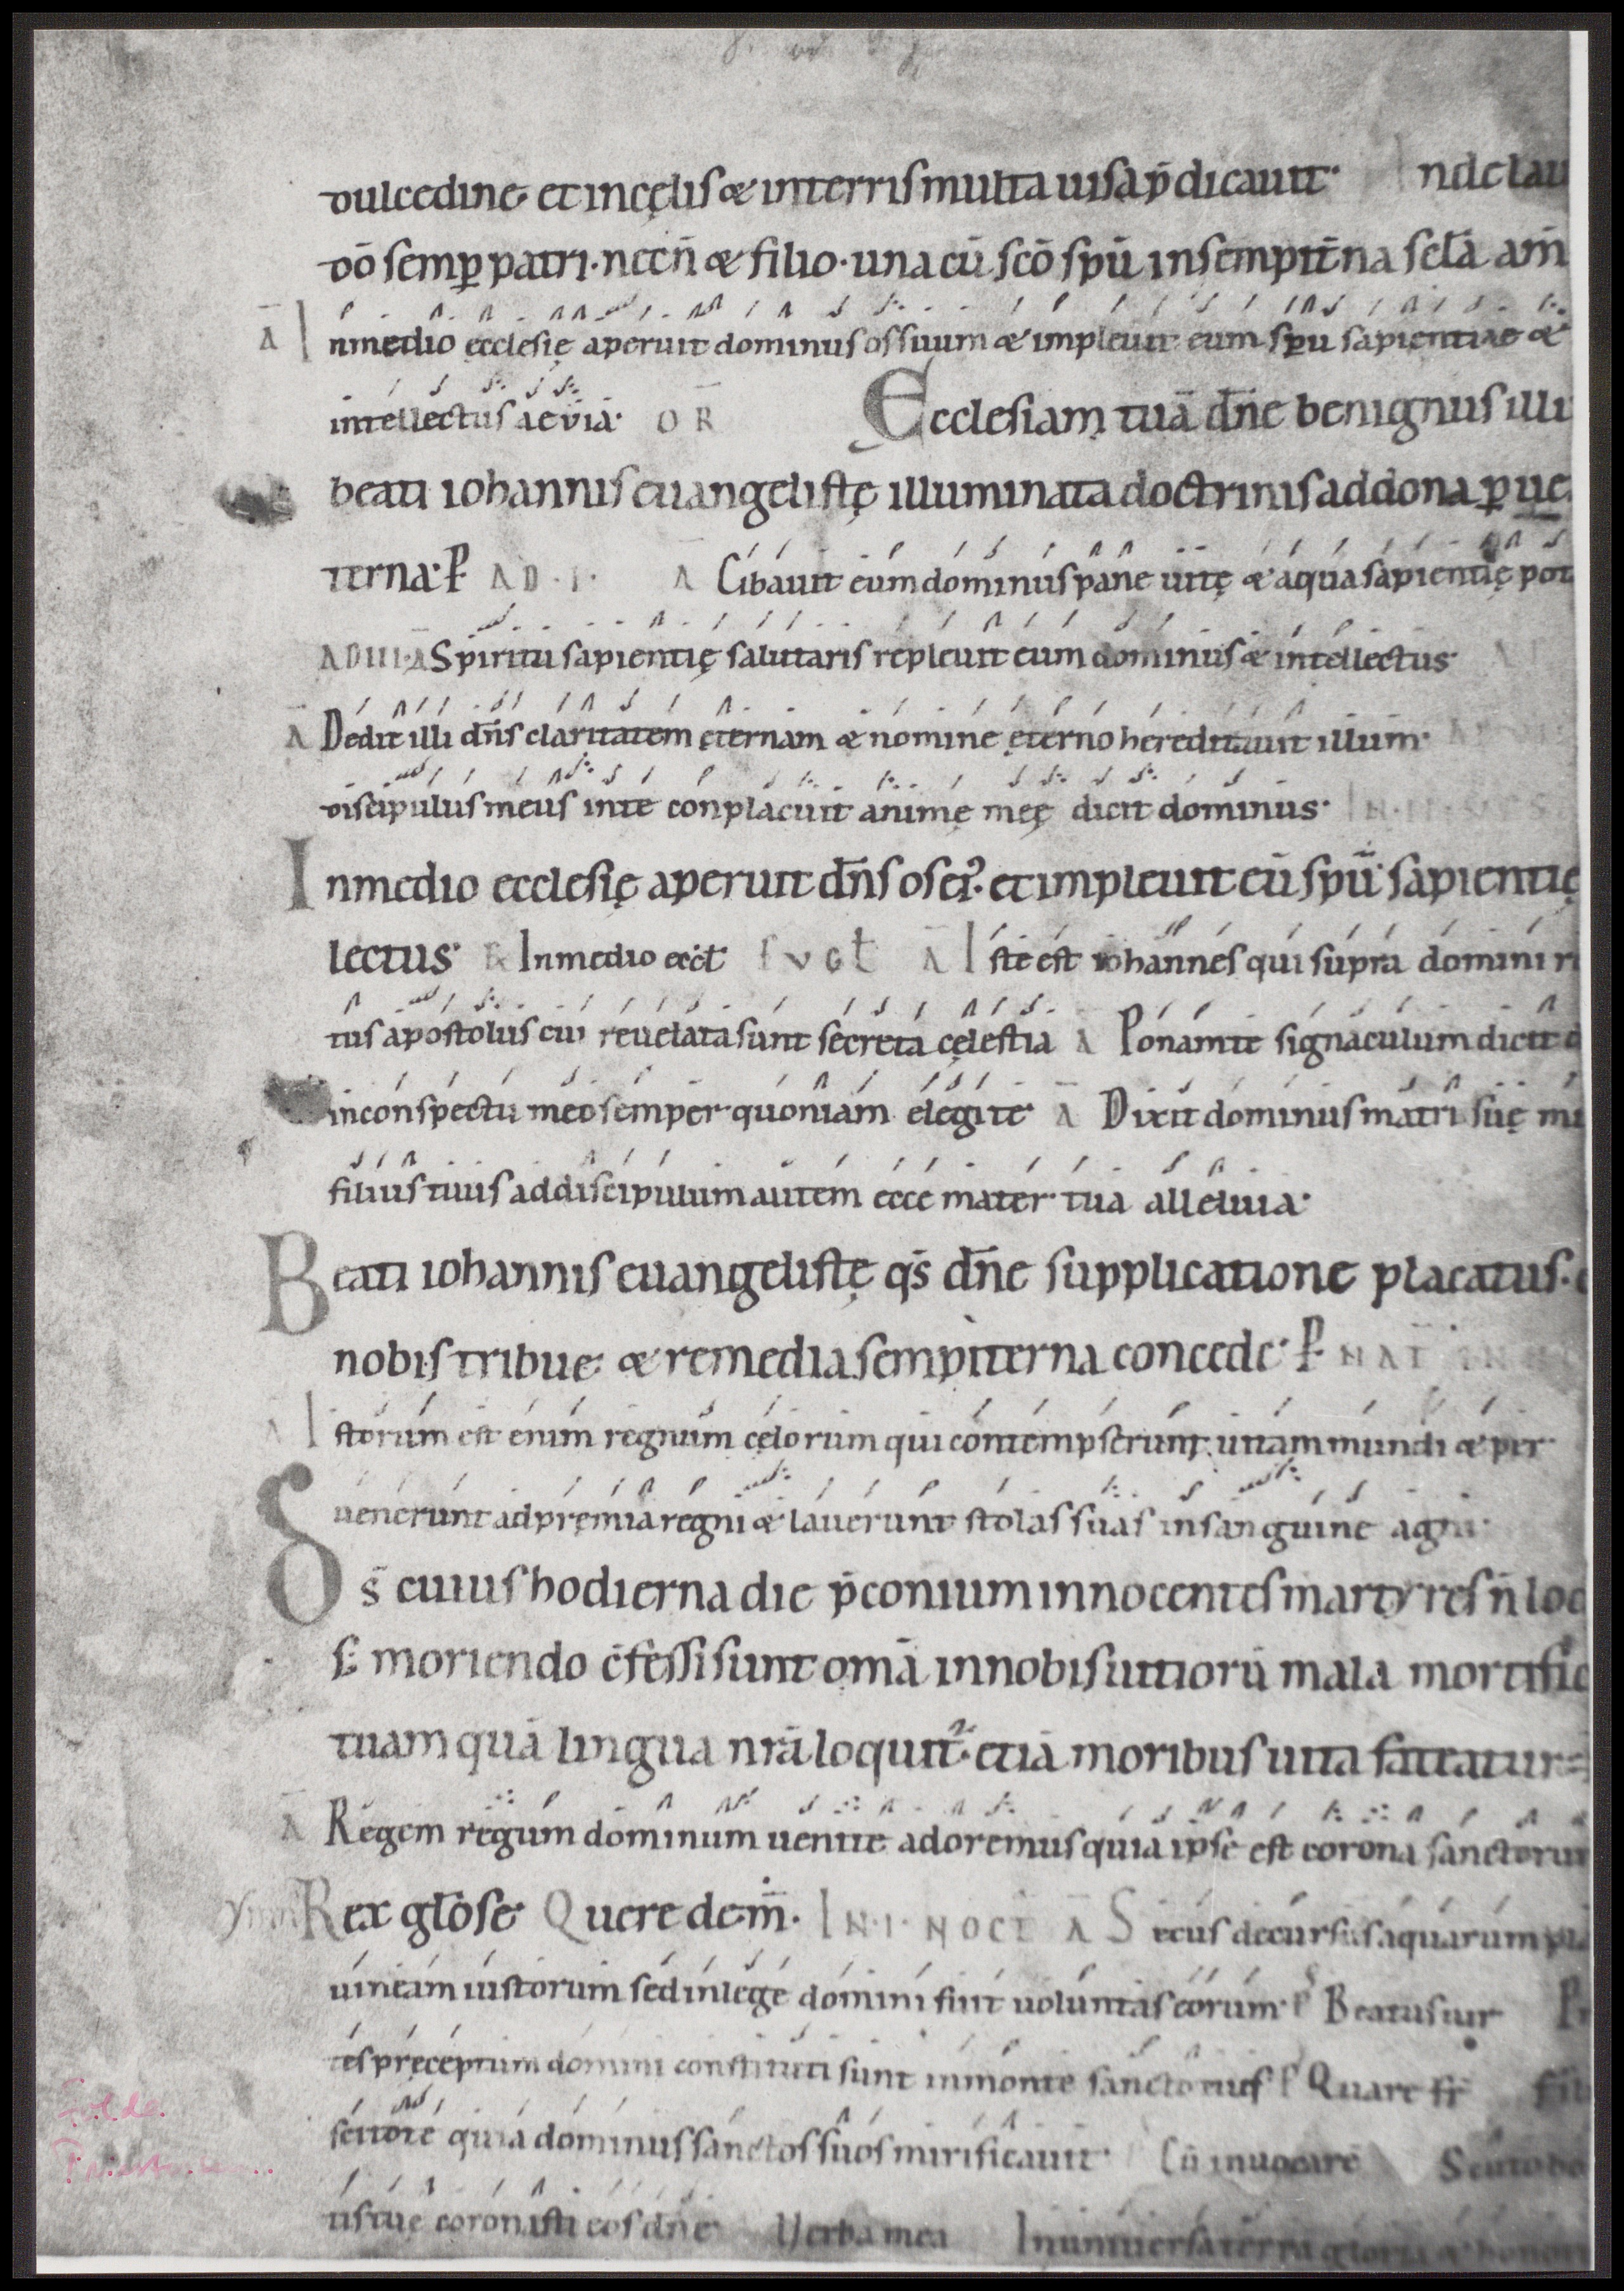 dulcedine· et incęlis & interris multa uisa p̄dicauit· Inde lau
dō semꝑ patri· necn̄ & filio· una cū scō spū insempit̄na scla am̄
Ā Inmedio ęcclesię aperuit dominus os suum & impleuit eum spu sapientiae &
intellectus aeuia· OR̄ Ecclesiam tuā dn̄e benignus illu
beati iohannis euangelistę illuminata doctrinis addona ꝑue
terna· P AD·I· Ā Cibauit eum dominus pane uitę & aqua sapientię pot
AD III·Ā Spiritu sapientię salutaris repleuit eum dominus & intellectus·
Ā Dedit illi dn̄s claritatem ęternam & nomine ęterno hereditauit illum·
discipulus meus inte conplacuit animę meę dicit dominus· IN·II·
Inmedio ecclesię aperuit dn̄s os ei᾽· et impleuit eū spū sapientię
lectus· R Inmedio ecc̄t Ā Iste est iohannes qui supra domini
tus apostolus cui reuelata sunt secreta cęlestia Ā Ponam te signaculum dicit
inconspectu meo semper quoniam elegi te Ā Dixit dominus matri suę mu
filius tuus addiscipulum autem ecce mater tua alleluia·
Beati iohannis euangelistę q̄s dn̄e supplicatione placatus·
nobis tribue· & remedia sempiterna concede· P NAT IN
Ā Istorum est enim regnum cęlorum qui contempserunt uitam mundi & per
uenerunt ad pręmia regni & lauerunt stolas suas insanguine agni·
Ds̄ cuius hodierna die p̄conium innocentes martyres n̄ loq
s; moriendo c̄fessi sunt omā innobis uitiorū mala mortific
tuam quā lingua nr̄a loquit᾽· etiā moribus uita fateatur
Ā Regem regum dominum uenite adoremus quia ipse est corona sanctorum
Ymn Rex glōse Quere dem̄· IN·I·NOCT Ā Secus decursus aquarum
uineam iustorum sed inlege domini fiut uoluntas eorum· P Beatus uir
tes pręceptum domini constituti sunt inmonte sancto eius P Quare fr̄
seruore quia dominus sanctos suos mirificauit· Cū inuocarē Scuto bo
tis tuę coronasti eos dn̄e· Verba mea Inuniuersa terra gloria & honor